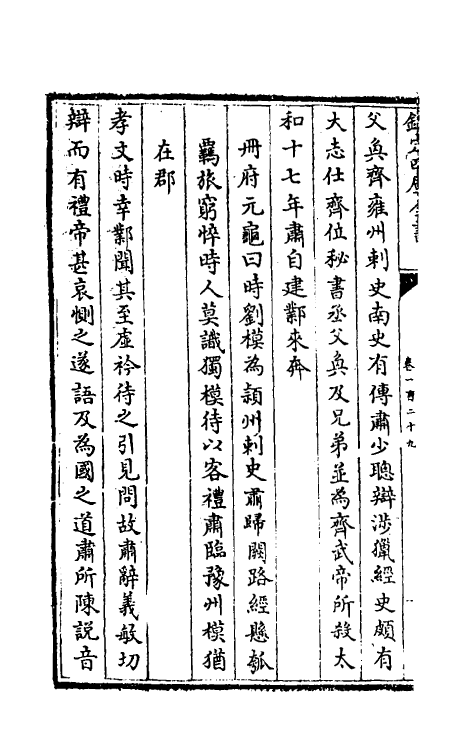 欽定四庫全書
卷一百二十九
父奐齊雍州刺史南史有傳肅少聰辯涉獵經史頗有
大志仕齊位秘書丞父奐及兄弟並為齊武帝所殺太
和十七年肅自建鄴來奔
冊府元龜曰時劉模為潁州刺史肅歸闕路經懸瓠
羇旅窮悴時人莫識獨模待以客禮肅臨豫州模猶
在郡
孝文時幸鄴聞其至虛衿待之引見問故肅辭義敏切
辯而有禮帝甚哀惻之遂語及為國之道肅所陳說音